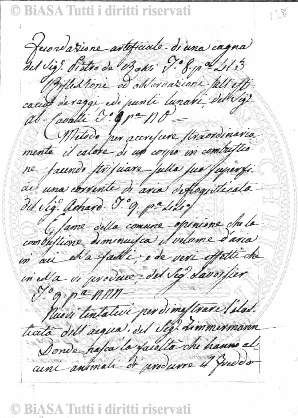 © BiASA Tutti i diritti riservati
Fecondazione artificiale di una cagna
del Sig.r Pietro da Rossi T.o 8. p.a
Riflessione ed osservazione sull'effi
cacia de raggi de' punti lunari del Sig.r
Ab. T.o 9 p.a
Metodo per accrescere straordinaria
mente il calore di un corpo in combustio
ne facendo strisciare sulla sua superfi
cie una corrente di aria deflogisticata
del Sig.r Achard T.o 9. p.a
Esame della comune opinione che la
combustione diminuisca il volume d'aria
in cui ella è fatta, e de' veri effetti che
in essa vi produce del Sig.r Lavoisier
T.o 9. p.a
Nuovi tentativi per dimostrare l'elas
ticità dell'acqua, del Sig.r Zimmermann
Donde nasca la facoltà che hanno al
cuni animali di produrre il freddo
© BiASA Tutti i diritti riservati